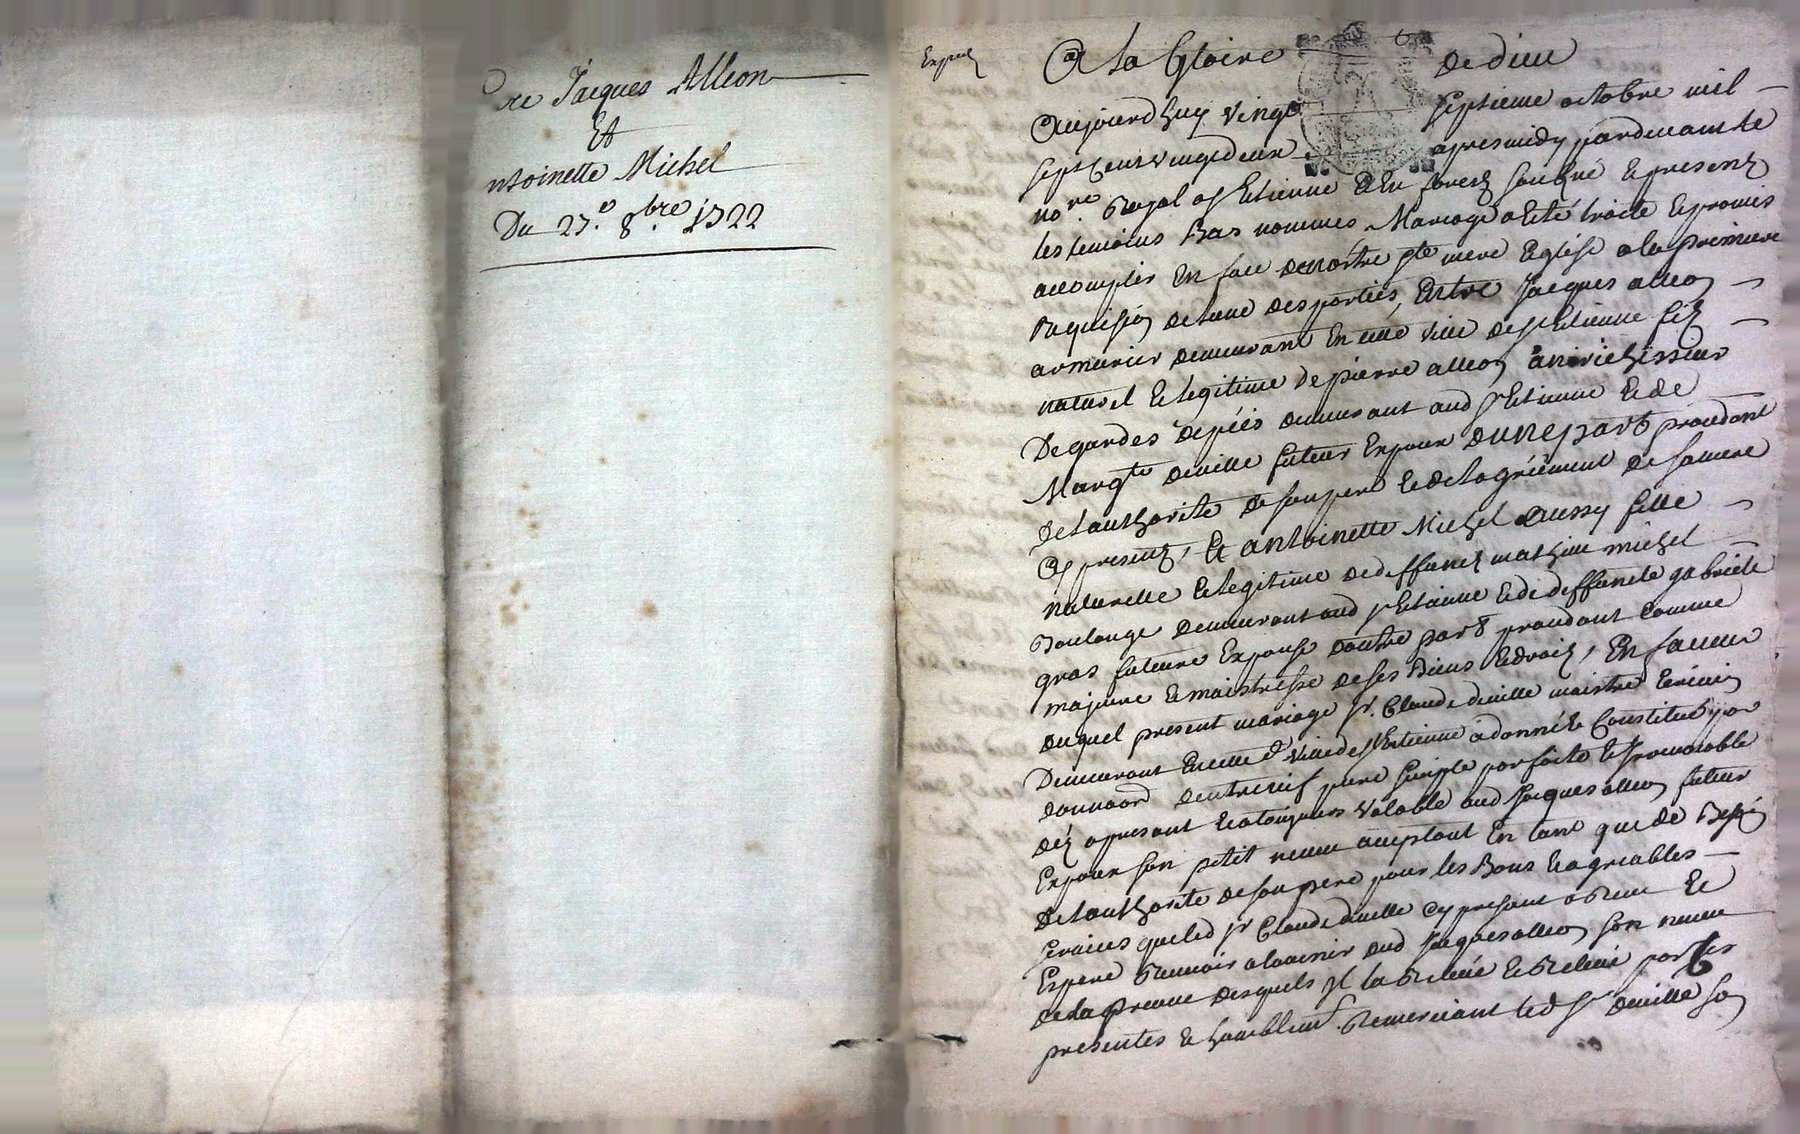 re Jacques Alleon
Et
ntoinette Michel
Du 27.e 8.bre 1722
Expedié
A la Gloire de dieu
Aujourdhuy vingt septieme octobre mil
sept cent vingt deux apres midy pardevant le
no.re Royal a st Etienne En forest soubsné et presents
les temoins Bas nommes Mariage a eté traité et promis
accomplir En face de nostre ste mere Eglise a la premiere
Requision de l'une des parties, Entre Jacques alleon
armurier demeurant En cette ville de st Etienne fils
naturel et legitime de pierre alleon anrichisseur
De gardes d'epées demeurant aud st Etienne et de
Margte deville futeur Expoux d'une part procedant
de l'authorité de son pere et de l'agréement de sa mere
Cy presents, Et antoinette Michel aussy fille
naturelle et legitime de deffunct mathieu michel
Boulange demeurant aud st Etienne et de deffuncte gabrielle
gras future Expouse d'autre part procedant comme
majeure et maistresse de ses Biens et droits, En faveur
duquel present mariage sr. Claude deville maistre
Demeurant En cette d ville de st Etienne a donné et Constitué par
donnaon d'entre vif pure simple parfaite et Irrevocable
déz a present et a toujours valable aud Jacques alleon futeur
Expoux son petit neveu acceptant En tant que de Besoin
de l'authorité de son pere pour les Bons et agreables
services que led sr Claude deville cy present a Receu et
Espere Recevoir a l'avenir dud Jacques alleon son neveu
de la preuve desquels yl la Relevé et Releve par les
presentes et humblemt. Remerciant led sr deville son